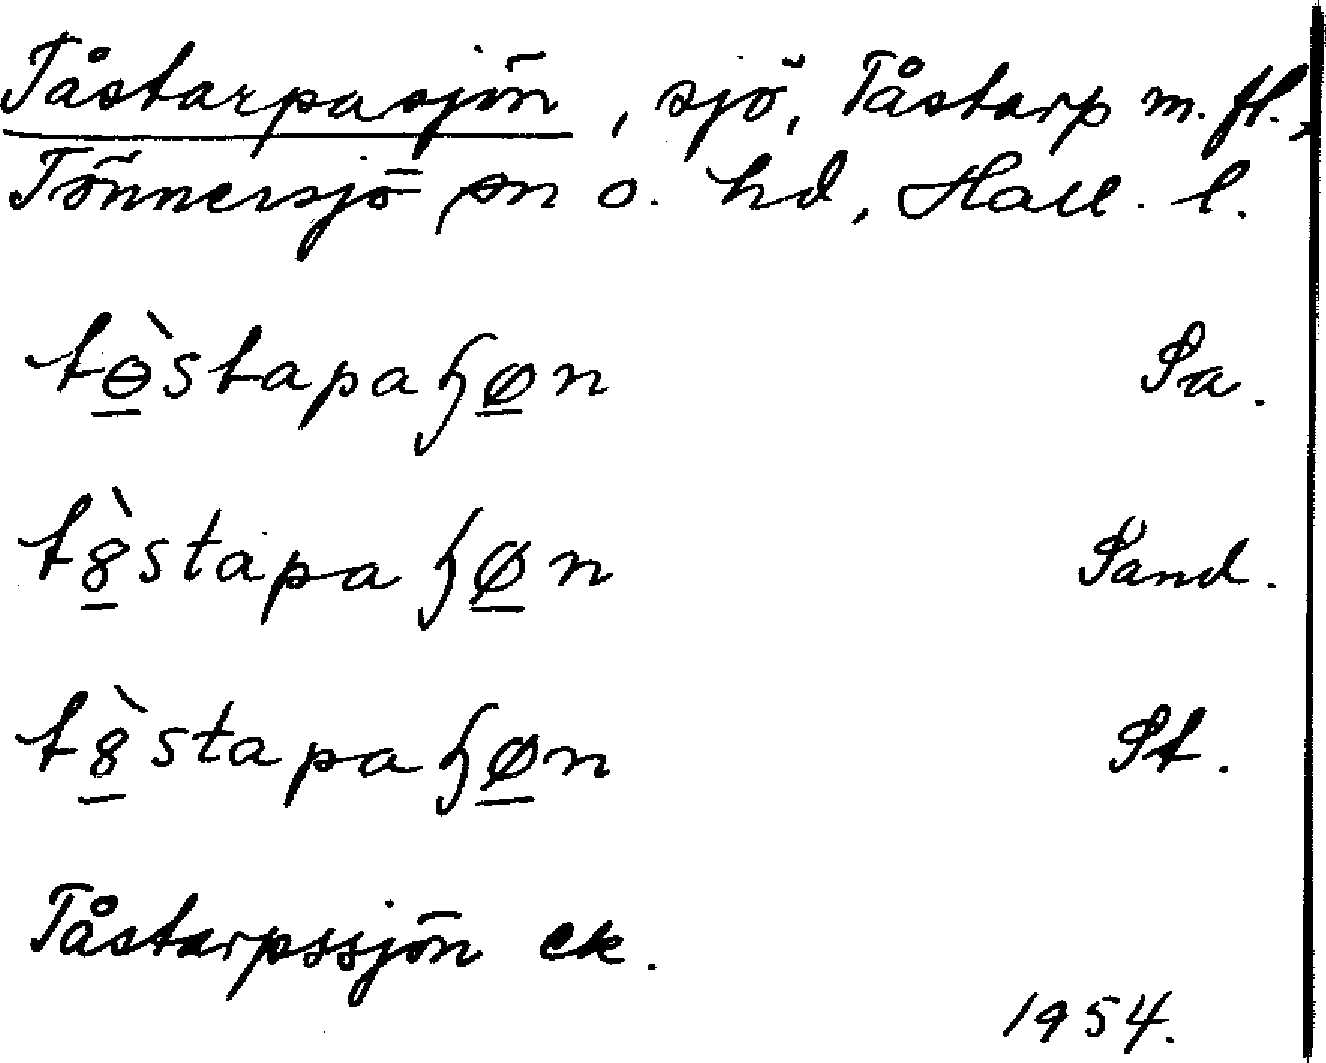 Tåstarpasjön, sjö, Tåstarp m. fl.,
Tönnersjö sn o. hd, Hall. l.
tɵ̲̀stapaɧø̲n Sa.
t8̲̀stapaɧø̲n Sand.
t8̲̀stapaɧø̲n St.
Tåstarpssjön ek.
1954.